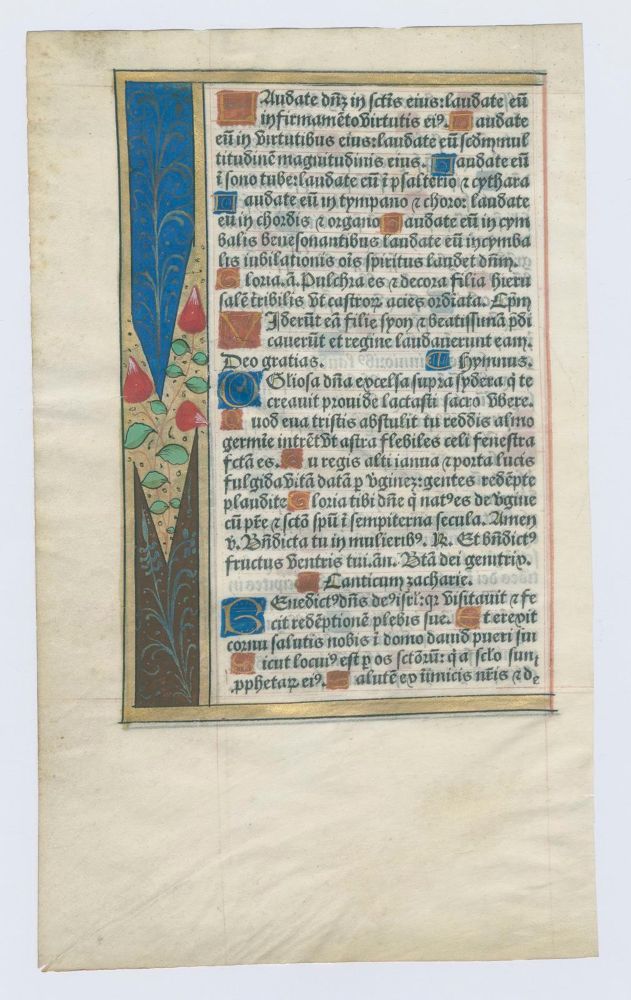 LAudate dñz in sctis eius: laudate eũ
in firmamẽto virtutis ei⁹. Laudate
eũ in virtutibus eius: laudate eũ scdm mul
titudinẽ magnitudinis eius. Laudate eũ
ĩ sono tube: laudate eũ ĩ psalterio ⁊ cythara
Laudate eũ in tympano ⁊ choro: laudate
eũ in chordis ⁊ organo Laudate eũ in cym
balis benesonantibus laudate eũ in cymba
lis iubilationis ois spiritus laudet dñm.
Gloria. ã. Pulchra es ⁊ decora filia hieru
salẽ tribilis vt castroꝝ acies ordĩata. Cpm
VIderũt eã filie syon ⁊ beatissimã p̄di
cauerũt et regine laudauerunt eam.
Deo gratias. Hymnus.
OGliosa dña excelsa supra sydera q̇ te
creauit prouide lactasti sacro vbere.
Quod eua tristis abstulit tu reddis almo
germie intrẽt vt astra flebiles celi fenestra
fctã es. Tu regis alti ianua ⁊ porta lucis
fulgida vitã datã ꝑ vginez: gentes redẽpte
plaudite Gloria tibi dñe q̇ nat⁹ es de vgine
cũ pr̃e ⁊ sctõ spũ ĩ sempiterna secula. Amen
v. Bñdicta tu in mulierib⁹. R. Et bñdict⁹
fructus ventris tui. añ. Btã dei genitrix.
Canticum zacharie.
BEnedict⁹ dñs de⁹ isrl: qꝛ visitauit ⁊ fe
cit redẽptionẽ plebis sue. Et erexit
cornu salutis nobis ĩ domo dauid pueri sui
Sicut locut⁹ est ꝑ os sctõrũ: q̇ a sclo sunt
ꝓphetaꝝ ei⁹. Salutẽ ex ĩimicis nr̃is ⁊ de